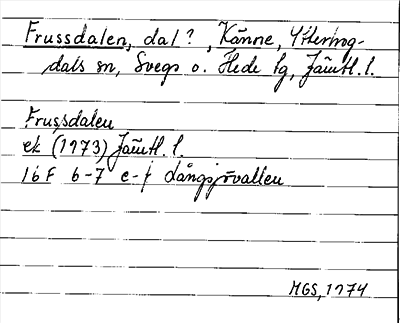 Frussdalen, dal?, Känne, Ytterhog-
dals sn, Svegs o. Hede tg, Jämtl. l.
Frussdalen
ek (1973) Jämtl. l.
16 F 6-7 e-f Långsjövallen
MGS, 1974